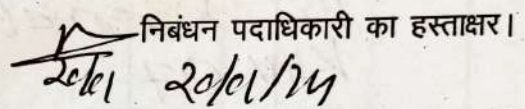 निबंधन पदाधिकारी का हस्ताक्षर।
20/01/24